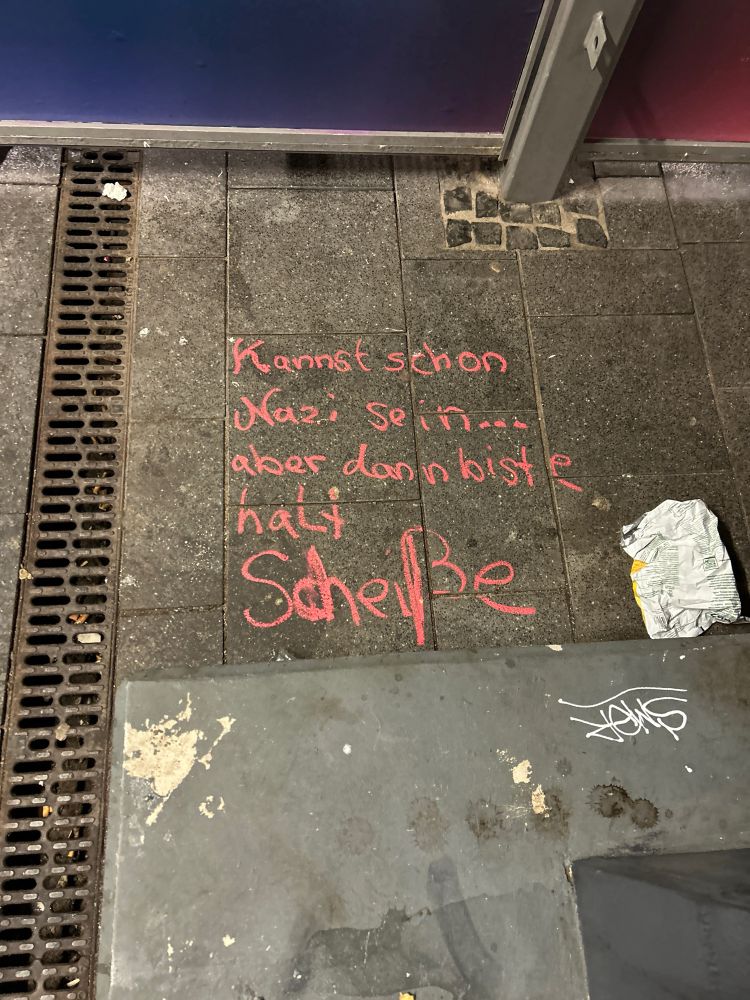 Kannst schon
Nazi sein...
aber dann biste
halt
Scheiße